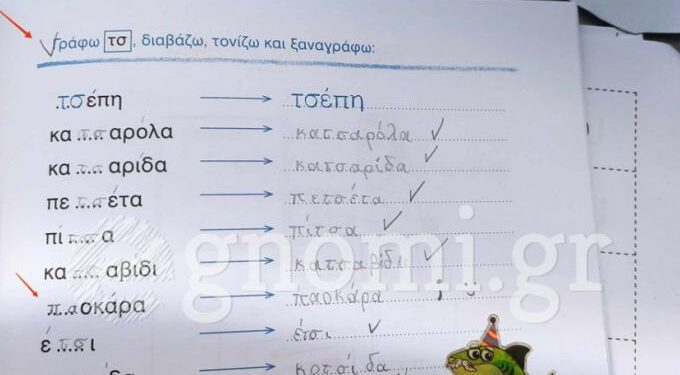 γράφω τσ, διαβάζω, τονίζω και ξαναγράφω:
τσέπη τσέπη
κα τσ αρόλα κατσαρόλα
κα τσ αρίδα κατσαρίδα
πε τσ έτα πετσέτα
πί τσ α πίτσα
κα τσ αβιδι κατσαβίδι
πασοκάρα πασοκάρα
έ τσ ι έτσι
κοτσίδα
gnomi.gr